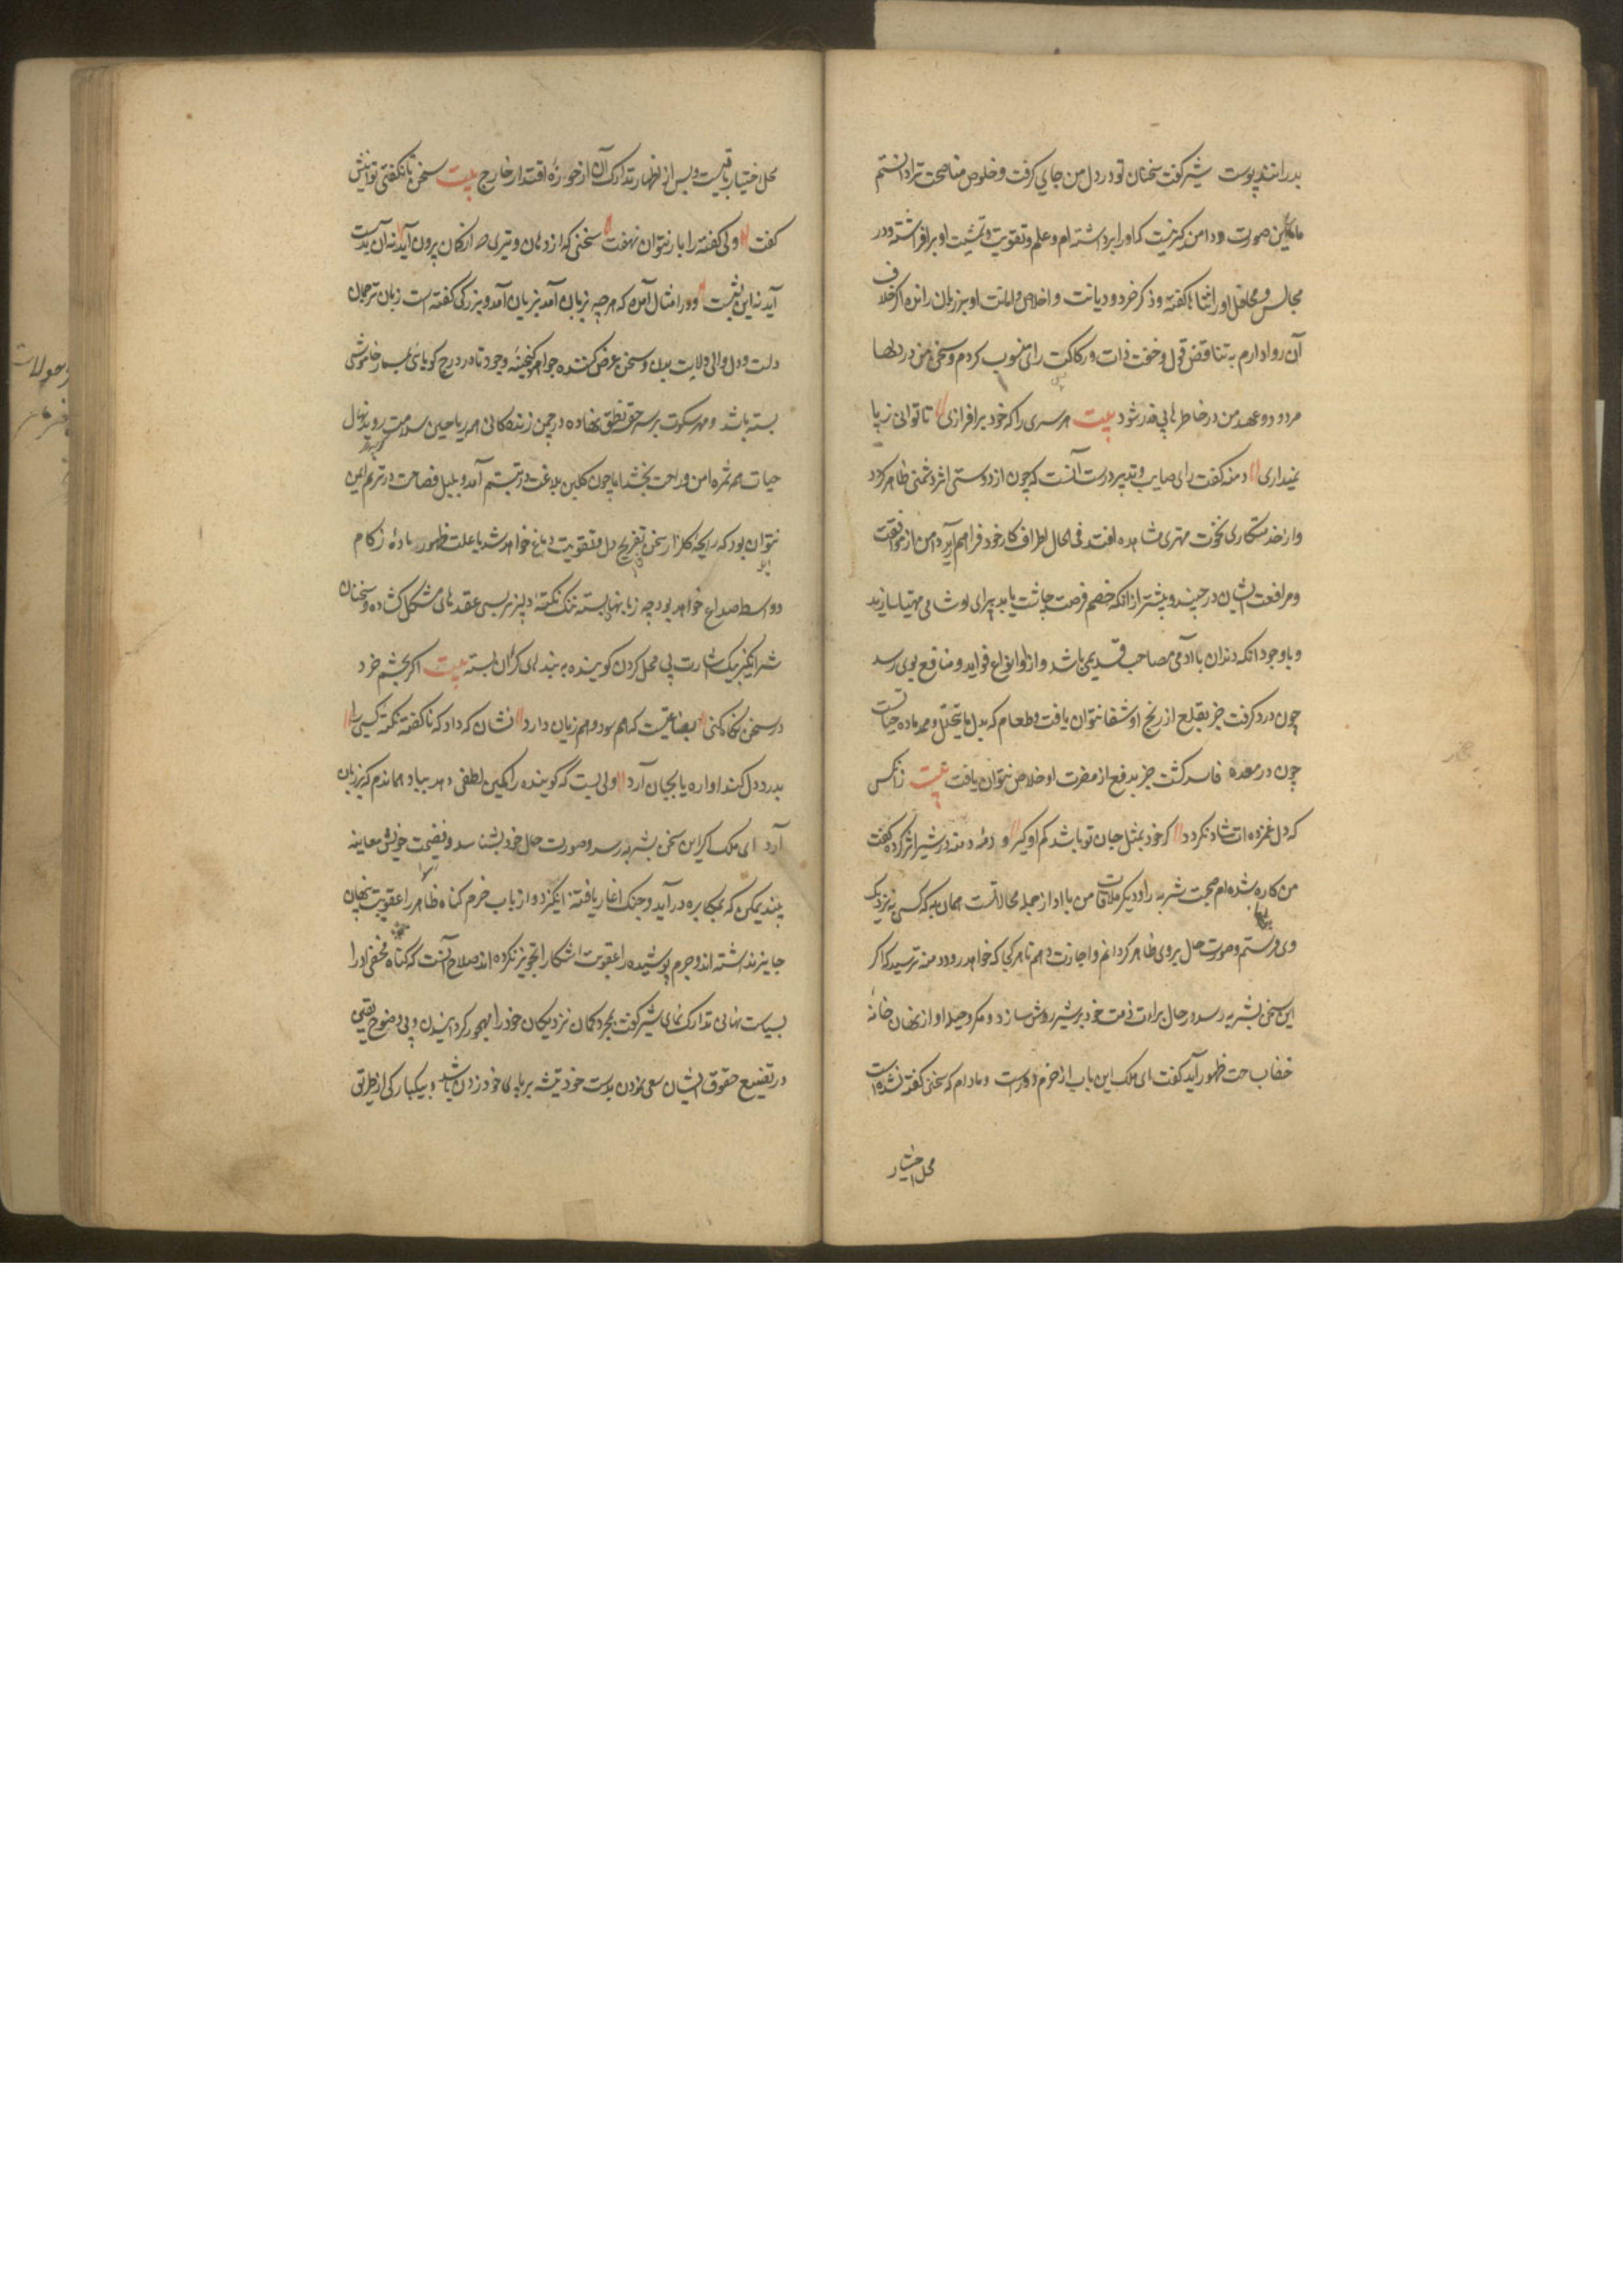 بدرانند پوست شیر گفت سخنان تو در دل من جای گرفت و خلوص مناصحت ترا دانستم
این صورت و دامن گیر نیست که او را برداشته‌ام و علم و تقویت و تمشیت او برافراشته و در
مجالس و محافل او را ثناها گفته و ذکر خرد و دیانت و اخلاص و امانت او بر زبان رانده اگر خلاف
آن روا دارم به تناقض قول و خفت ذات و رکاکت رای منسوب گردم و سخن من در دلها
مردود و عهد من در خاطرها بی قدر شود بیت هر سری را که خود برافرازی تا توانی ز پا
نیندازی دمنه گفت رای صایب و تدبیر درست آنست که چون از دوستی اثر دشمنی ظاهر گردد
و از خدمتکاری نخوت مهتری مشاهده افتد فی الحال اطراف کار خود فراهم آرد و دامن از موافقت
و مرافقت ایشان در چیند و پیشتر از آنکه خصم فرصت چاشت یابد برای او شامی مهیا سازند
و با وجود انکه دندان با آدمی مصاحب قدیمی باشد و از او انواع فواید و منافع بوی رسد
چون درد گرفت جز بقلع از رنج او شفا نتوان یافت و طعام که بدل ما یتحلل و ممد ماده حیاتست
چون در معده فاسد گشت جز بدفع از مضرت او خلاص نتوان یافت بیت زانکس
که دل غمزده ات شاد نگردد گر خود بمثل جان تو باشد کم او گیر و دمدمه دمنه در شیر اثر کرده گفت
من کاره شده ام صحبت شنزبه را و دیگر ملاقات من با او از جمله محالاتست همان به که کسی به نزدیک
وی فرستم و صورت حال بر وی ظاهر گردانم و اجازت دهم تا هر کجا که خواهد رود دمنه ترسید که اگر
این سخن بشنزبه رسد در حال برات ذمت خود بر شیر روشن سازد و مکر و حیله او از نهان خانه
خفا بساحت ظهور آید گفت ای ملک این باب از حزم دورست و مادام که سخن گفته نشده است
محل اختیار
محل اختیار باقیست و پس از اظهار تدارک آن از حوزه اقتدار خارج بیت سخن تا نگفتی توانیش
گفت ولی گفته را باز نتوان نهفت سخنی که از دهان و تیری که از کمان بیرون آید نه آن بدست
آید نه این بشست و در امثال آمده که هر چه بزبان آمد بزیان آمد و بزرگی گفته است زبان ترجمان
دلست و دل والی ولایت بدن و سخن عرض کننده جواهر گنجینه وجود تا در درج گویائی بمسمار خاموشی
بسته باشد و مهر سکوت بر سر حقه نطق نهاده در چمن زندگانی همه ریاحین سلامت روید و نهال
حیات همه ثمره امن و راحت بخشد اما چون گلبن بلاغت در تبسم آمد و بلبل فصاحت در ترنم ایمن
نتوان بود که رایحه گلزار سخن تفریح دل و تقویت دماغ خواهد شد یا علت ظهور ماده زکام
و واسطه صداع خواهد بود چه زبانها بسته تنگ نکته دلپذیر بسی عقدهای مشکل گشاده و سخنان
شرانگیز بیک اشارت بی محل گردن گوینده به بندهای گران بسته بیت اگر بچشم خرد
در سخن نگاه کنی بضاعتیست که هم سود و هم زیان دارد نشان که داد که ناگفته نکته کسی را
بدرد دل کند اواره یا بجان آرد ولی بسیست که گوینده را همین لطفی دهد بباد هماندم که بر زبان
آرد ای ملک اگر این سخن بشنزبه رسد و صورت حال خود بشناسد و فضیحت خویش معاینه
بیند یمکن که بمکابره در آید و جنگ آغاز یا فتنه انگیزد و ارباب حزم گناه ظاهر را عقوبت پنهان
جایز نداشته اند و جرم پوشیده را عقوبت اشکارا تجویز نکرده اند صلاح آنست که گناه مخفی او را
بسیاست نهانی تدارک نمای شیر گفت بمجرد گمان نزدیکان خود را مهجور گردانیدن و بی وضوح یقین
در تضییع حقوق ایشان سعی نمودن بدست خود تیشه بر پای خود زدن باشد و بیکبارگی از طریق